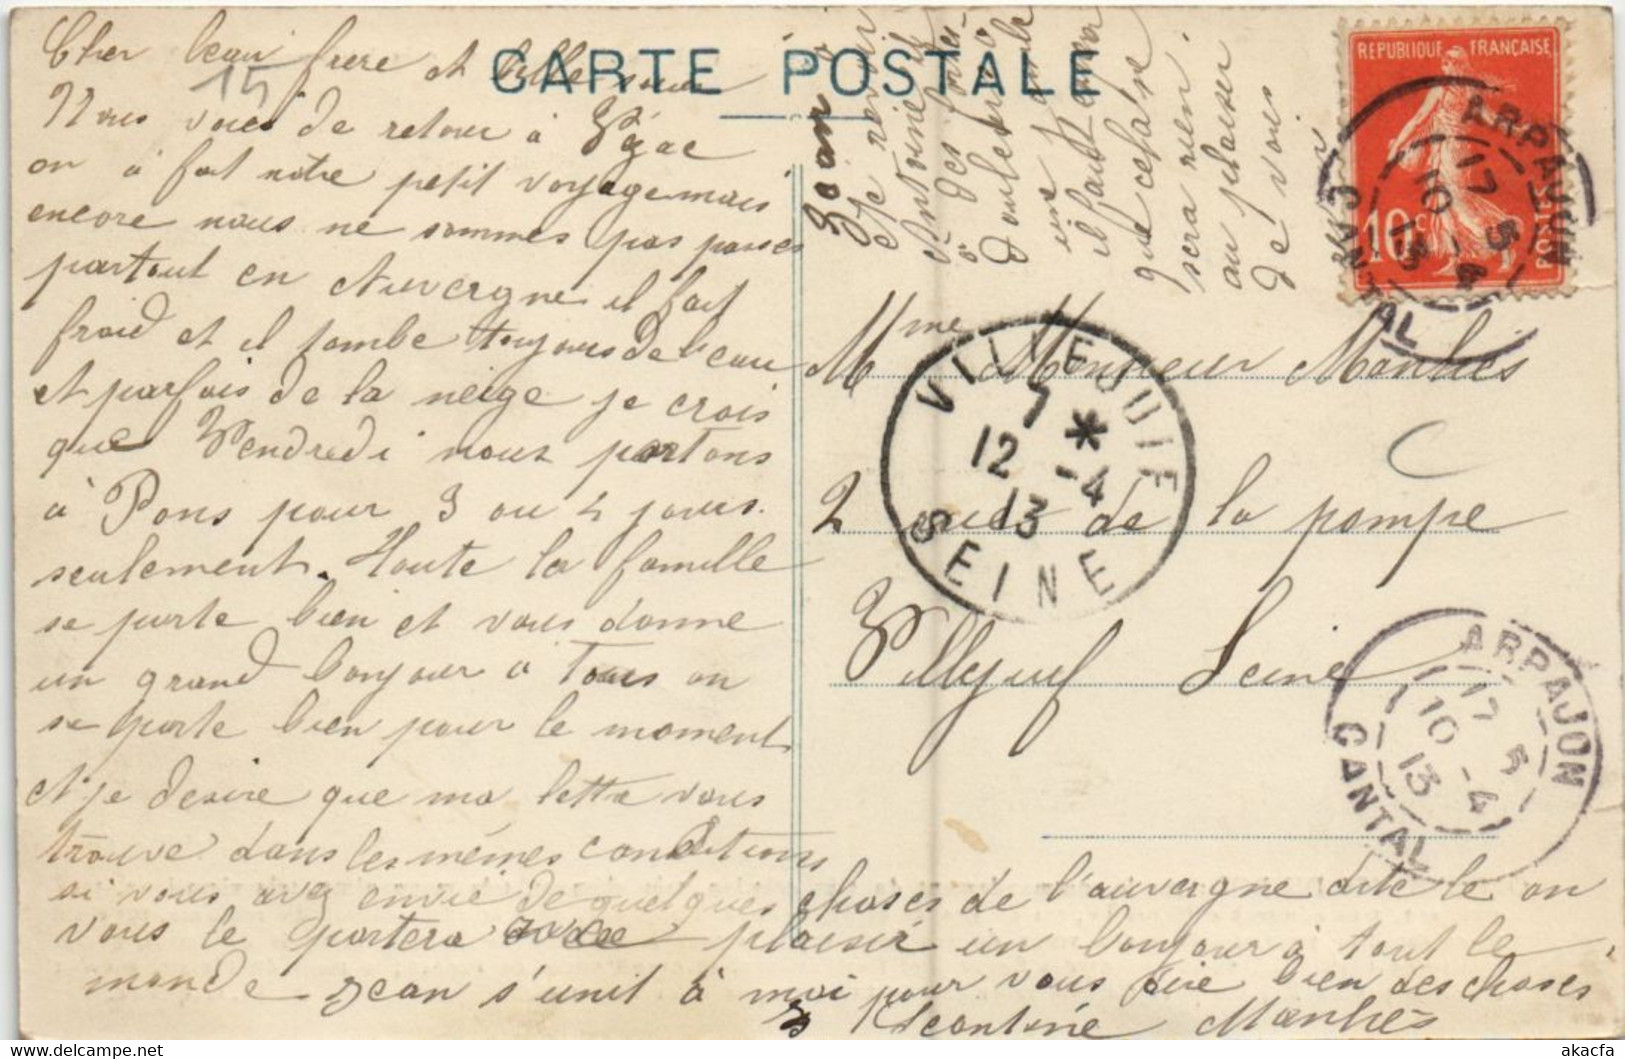 CARTE POSTALE
Cher beau frere et belle sœur
15
Nous voici de retour à Vézac
on à fait nôtre petit voyage mais
encore nous ne sommes pas passés
partout en Auvergne il fait
froid et il tombe toujours de l'eau
et parfois de la neige je crois
que Vendredi nous partons
à Pons pour 3 ou 4 jours
seulement. Toute la famille
se porte bien et vous donne
un grand bonjour a Tous on
se porte bien pour le moment
et je desire que ma lettre vous
trouve dans les mêmes conditions
si vous avez envie de quelques choses de l'auvergne dite le on
vous le portera avec plaisir un bonjour à tout le
monde Jean s'unit à moi pour vous dire bien des choses
Léontine Manhès
Jean
Au revoir
Antoinette
que cela ne
sera rien
au plaisir
de vous
REPUBLIQUE FRANÇAISE
10c
POSTES
ARPAJON
17
10 - 5
13 4
CANTAL
Mme Monsieur Manhès
2 rue de la pompe
Villejuif Seine
VILLEJUIF
7 *
12 -4
13
SEINE
ARPAJON
17
10 5
13 -4
CANTAL
akacfa